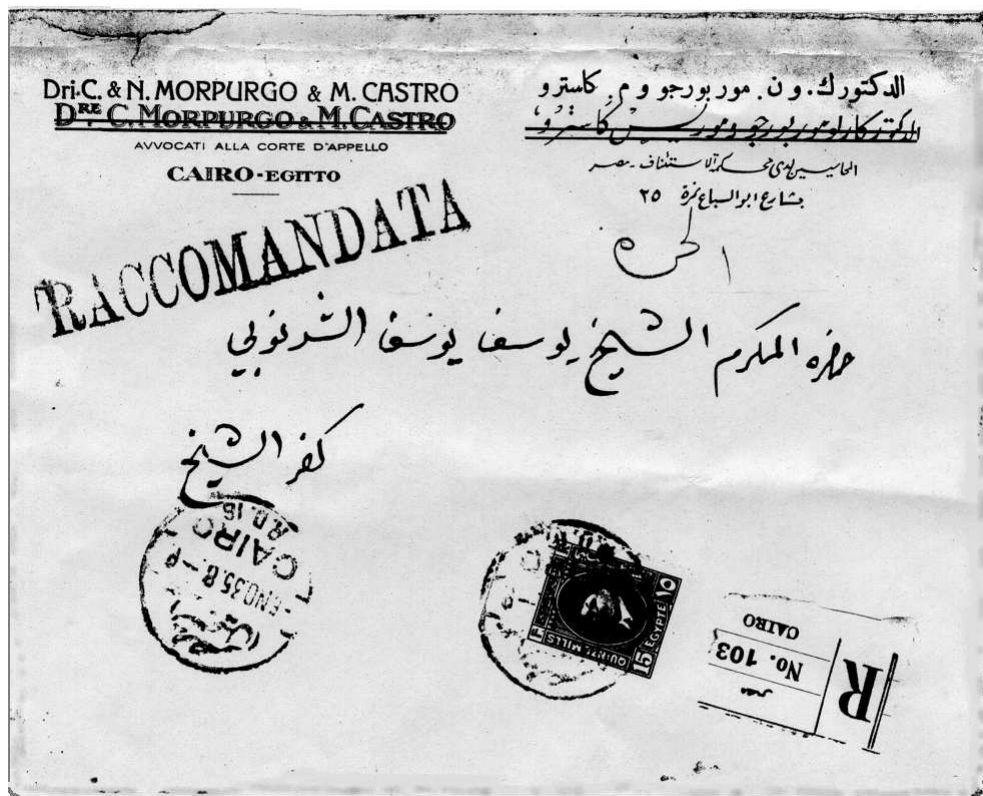 Dri. C. & N. MORPURGO & M. CASTRO
DRE C. MORPURGO & M. CASTRO
AVVOCATI ALLA CORTE D'APPELLO
CAIRO-EGITTO
الدكتور ك. و ن. موربورجو و م. كاسترو
الدكتور كارلو موربورجو وموريس كاسترو
المحاميين لدى محكمة الاستئناف - مصر
بشارع ابو السباع نمرة ٢٥
RACCOMANDATA
حضره المكرم الشيخ يوسف يوسف
كفر الشيخ
R.D. 16
CAIRO
NO.35.8
15 EGYPTE
QUINZE MILLS
R
CAIRO
No. 103
مصر